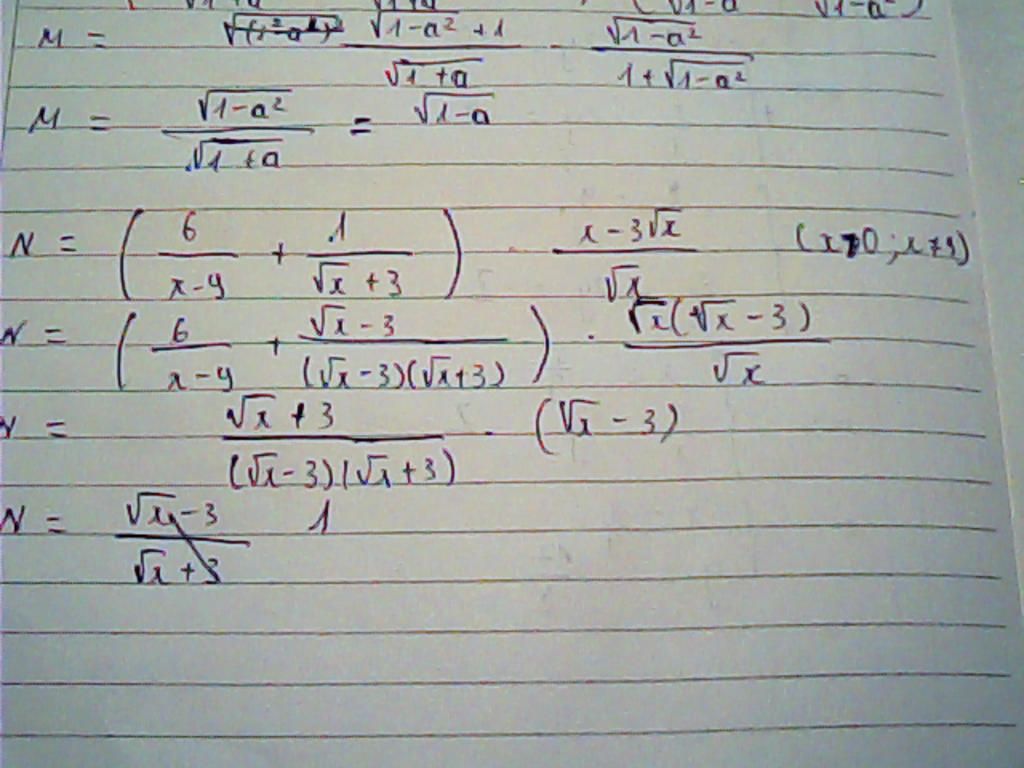 M = (√1-a² + 1)/√1+a · √1-a²/(1+√1-a²)
M = √1-a²/√1+a = √1-a
N = (6/(x-9) + 1/(√x+3)) · (x-3√x)/√x (x>0; x≠9)
N = (6/(x-9) + (√x-3)/((√x-3)(√x+3))) · √x(√x-3)/√x
N = (√x+3)/((√x-3)(√x+3)) · (√x-3)
N = (√x-3)/(√x+3) 1